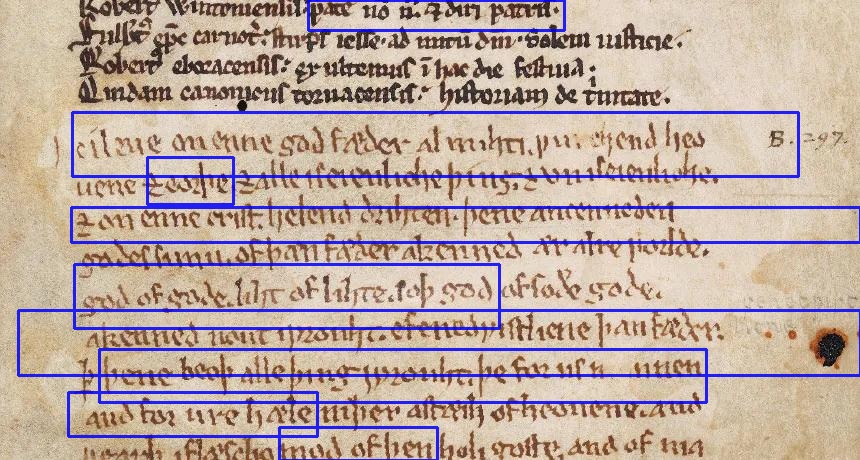 Robert Wintoniensis. pate nō n̄. ⁊ diri patris.
ep̄c carnot: stirps iesse. ad nutū dn̄i. Solem iusticie.
Robert eboracensis: ex ultemus ī hac die festiua.
Quidam canonicus tornacensis: historiam de t̓nitate.
on enne god fæder almihti. hend heo B. 297.
uene ⁊ eorþe ⁊ alle iseienliche þing. ⁊ vniseienliche.
⁊ on enne crist. helend drihten. þene ancenneden
godes sunu. of þan fæder akenned ær alre worlde.
god of gode. liht of lihte. soþ god of soðe gode.
akenned nout iwrouht. efenedwistliene þan fæder.
þ þene beoþ alle þing iwrouht. þe for us men
and for ure hæle niþer astæih of heouene. and
iflæscho of hen holi goste. and of ma